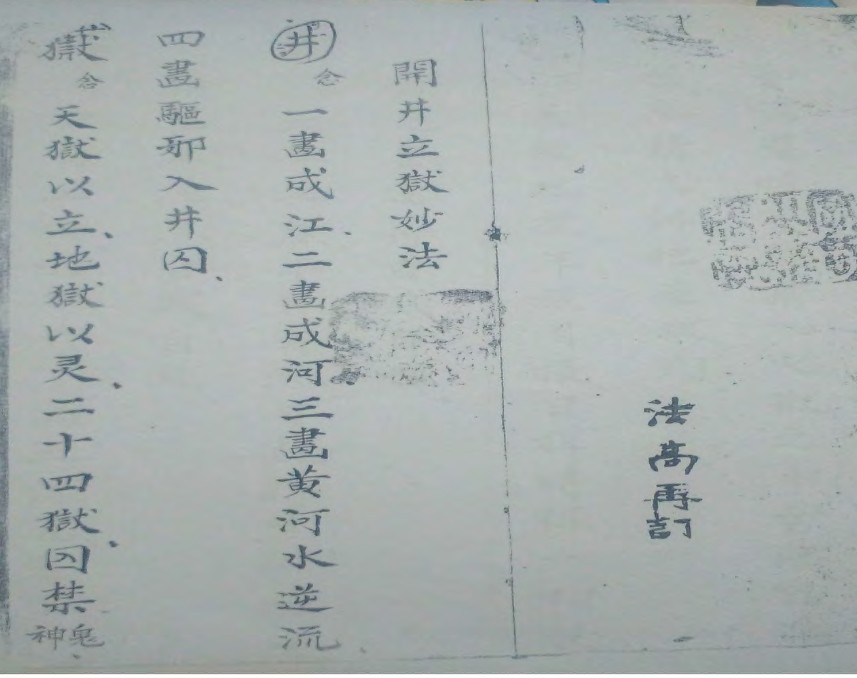 法高再訂
開井立獄妙法
井 念 一畫成江、二畫成河、三畫黃河水逆流、
四畫驅邪入井囚、
獄 念 天獄以立、地獄以灵、二十四獄囚禁鬼神、